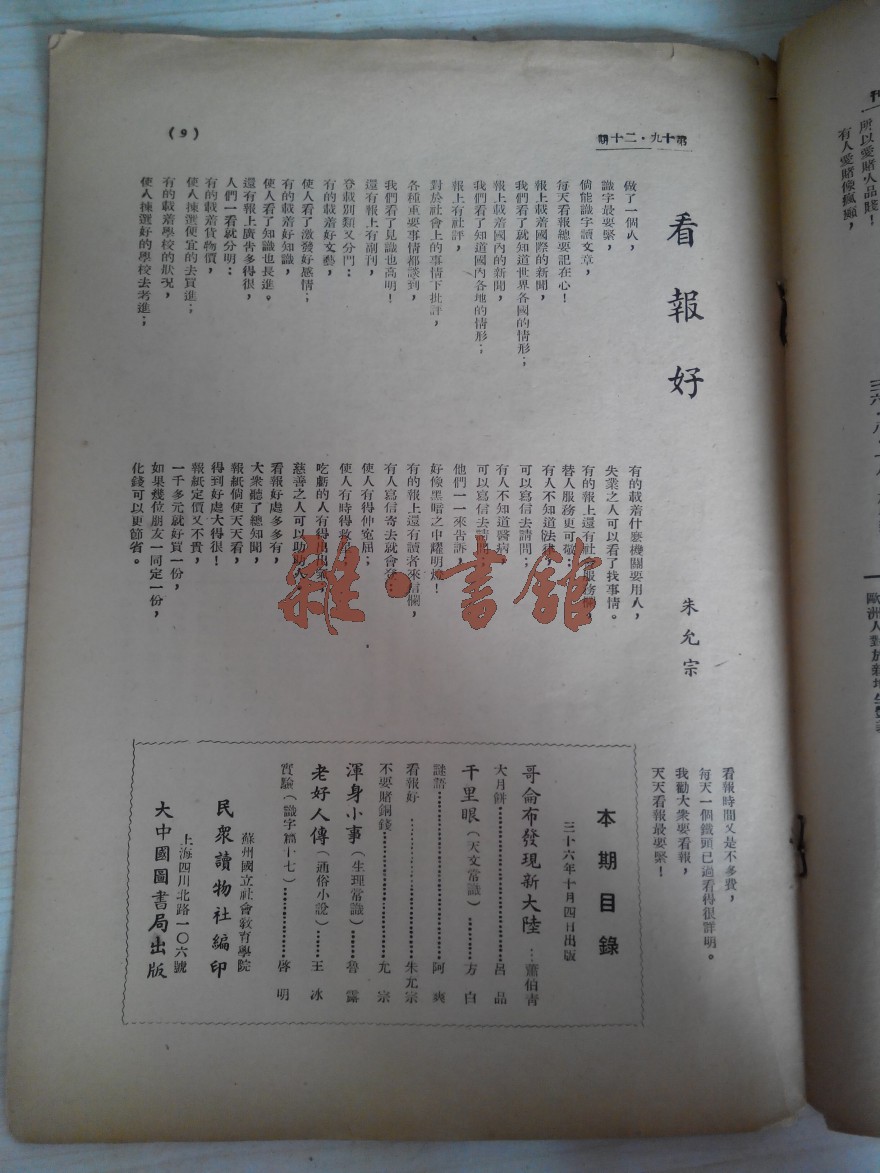 第十九·二十期
(9)
看報好
朱允宗
做了一個人，
識字最要緊，
倘能識字讀文章，
每天看報總要記在心！
報上載着國際的新聞，
我們看了就知道世界各國的情形；
報上載着國內的新聞，
我們看了知道國內各地的情形；
報上有社評，
對於社會上的事情下批評，
各種重要事情都談到，
我們看了見識也高明！
還有報上有副刊，
登載別類又分門：
有的載着好文藝，
使人看了激發好感情；
有的載着好知識，
使人看了知識也長進。
還有報上廣告多得很，
人們一看就分明：
有的載着貨物價，
使人揀選便宜的去買進；
有的載着學校的狀況，
使人揀選好的學校去考進；
有的載着什麼機關要用人，
失業之人可以看了找事情。
有的報上還有社會服務欄，
替人服務更可敬：
有人不知道法律，
可以寫信去請問；
有人不知道醫病，
可以寫信去請問
他們一一來告訴，
好像黑暗之中耀明燈！
有的報上還有讀者來信欄，
有人寫信寄去就會登：
使人有得伸寃屈；
使人有時得救
吃虧的人有得出
慈善之人可以助
看報好處多多有，
大衆聽了總知聞，
報紙倘使天天看，
得到好處大得很！
報紙定價又不貴，
一千多元就好買一份，
如果幾位朋友一同定一份，
化錢可以更節省。
看報時間又是不多費，
每天一個鐘頭已過看得很詳明。
我勸大衆要看報，
天天看報最要緊！
本期目錄
三十六年十月四日出版
哥侖布發現新大陸…蕭伯青
大月餅…………呂品
千里眼（天文常識）………方白
謎語…………阿爽
看報好…………朱允宗
不要賭銅錢…………允宗
渾身小事（生理常識）………魯露
老好人傳（通俗小說）……王冰
實驗（識字篇十七）…………啓明
蘇州國立社會教育學院
民衆讀物社編印
上海四川北路一〇六號
大中國圖書局出版
刊
所以愛賭人品賤！
有人愛賭像瘋癲，
雜·書館